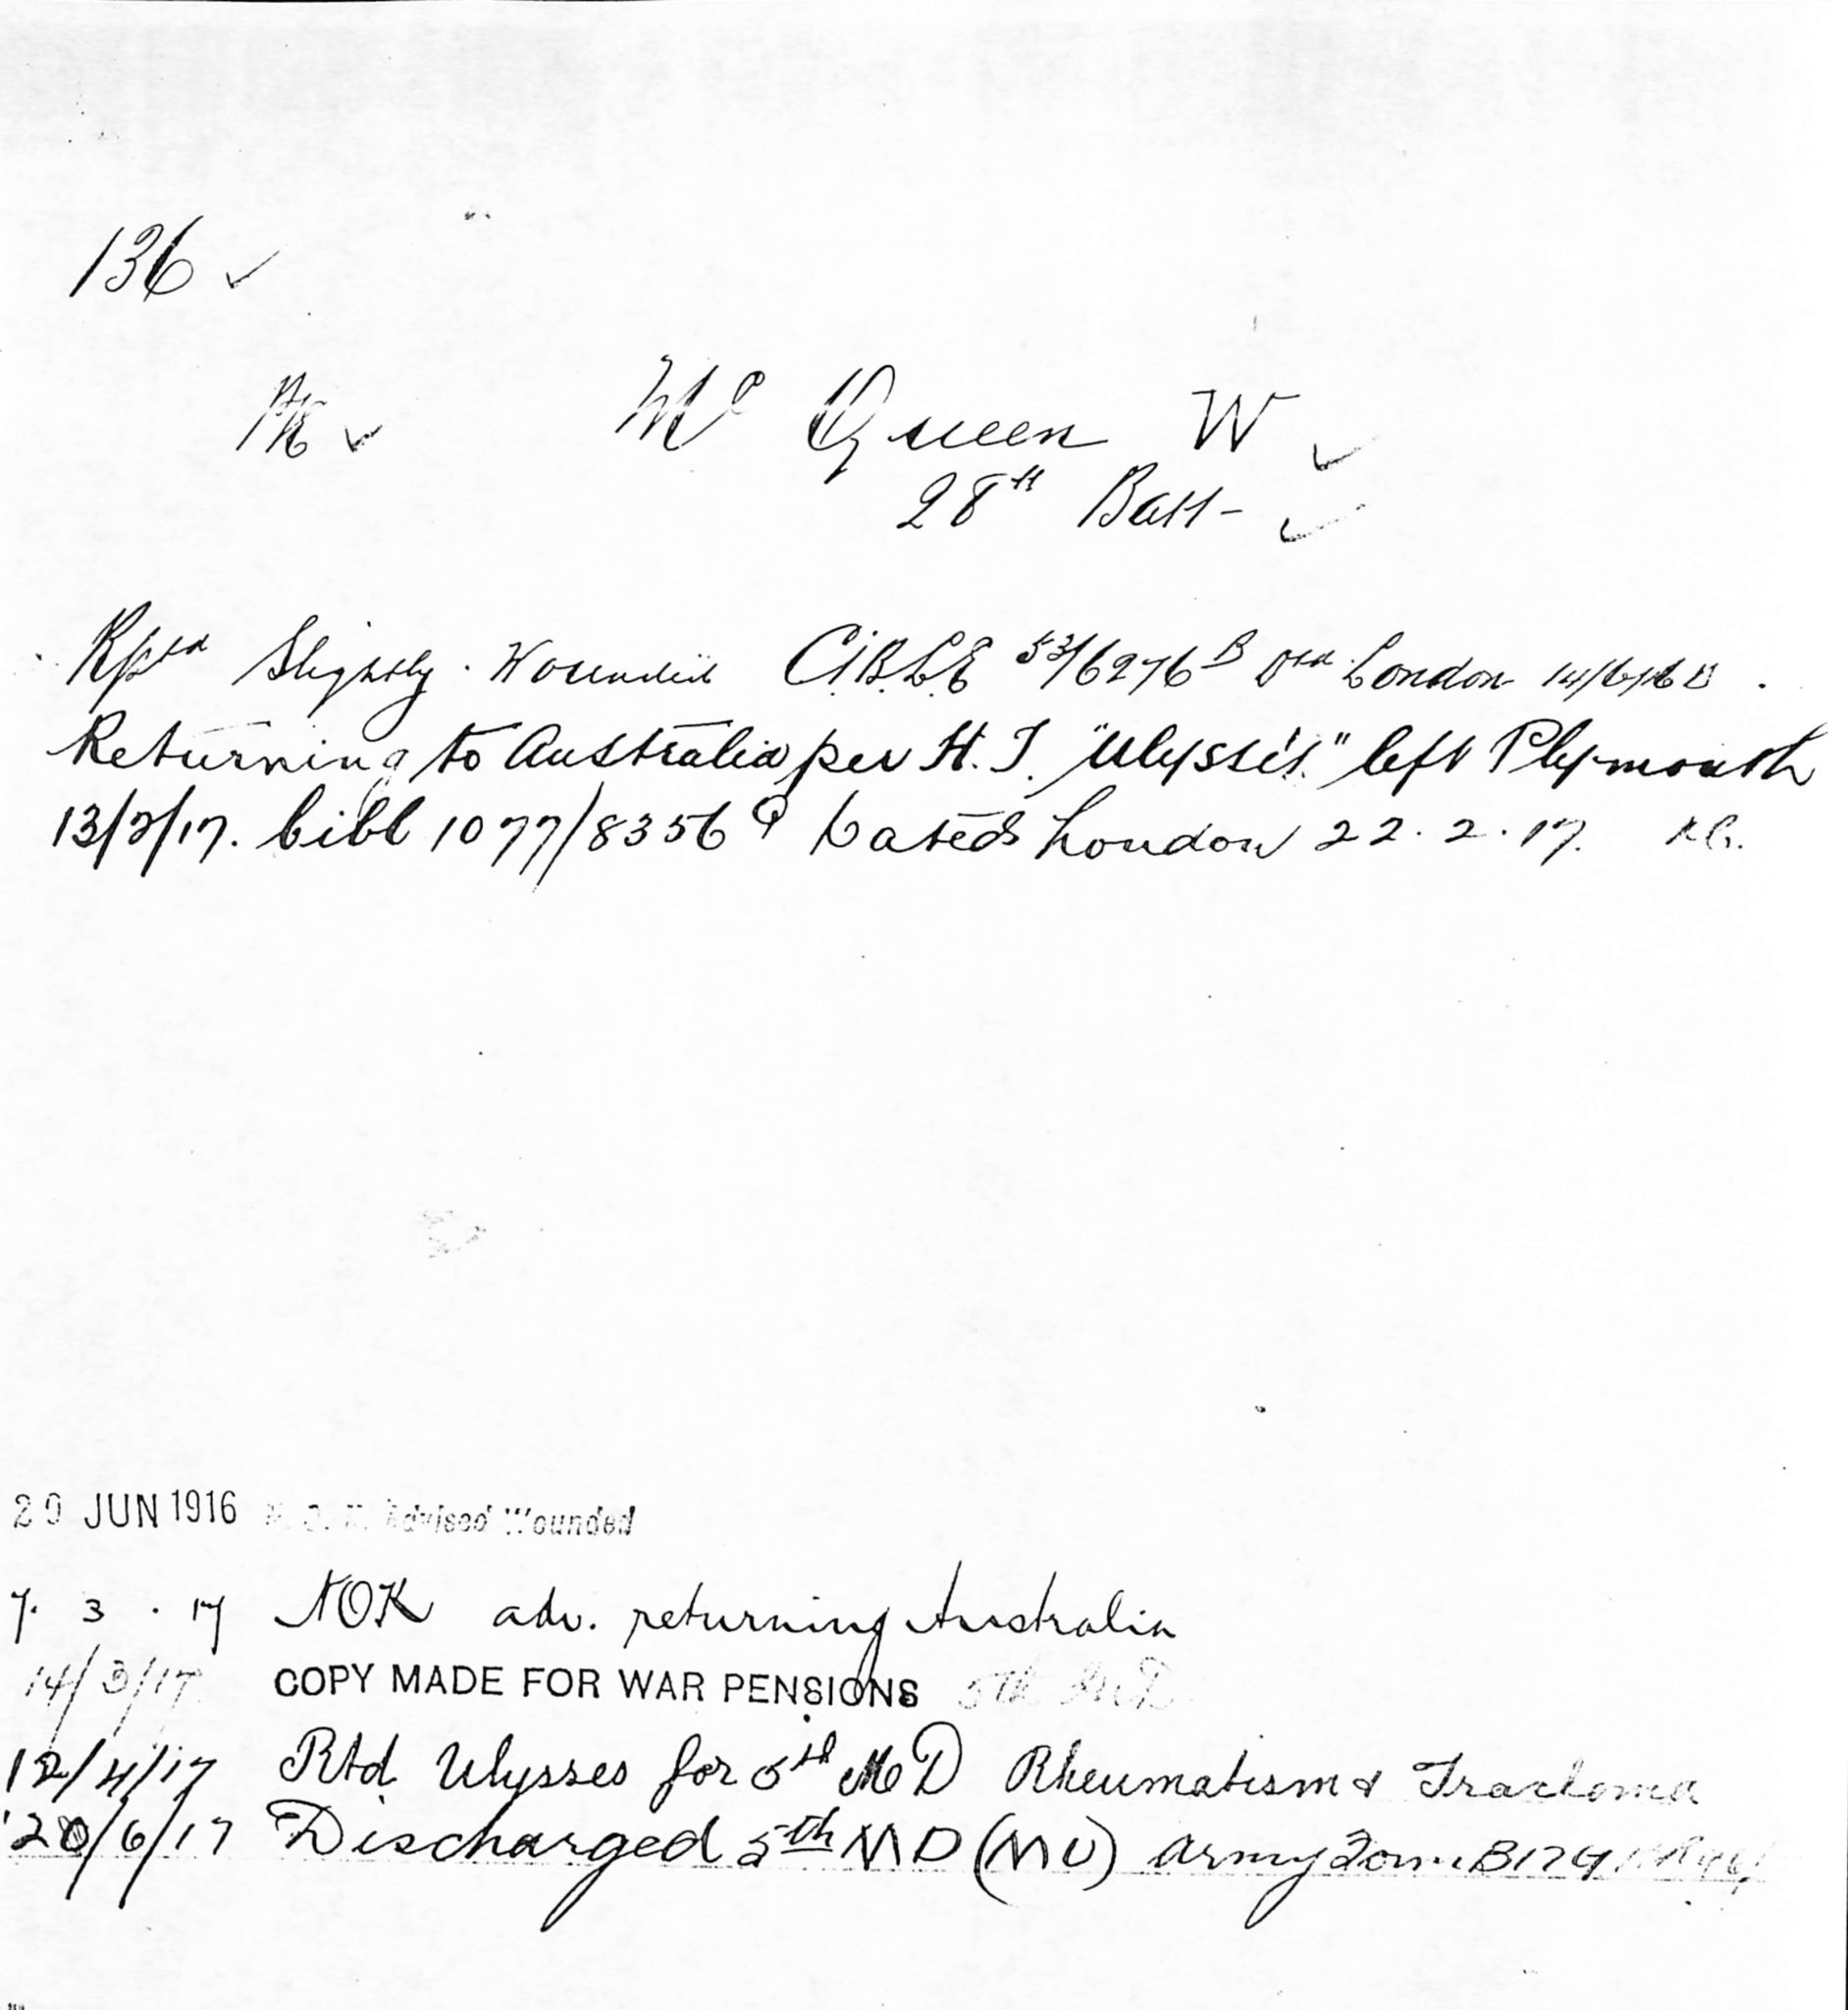 136 ✓
Pte ✓ Mc Queen W ✓
28th Batt- ✓
Rptd Slightly Wounded C.I.B.L.E 53/6276 B Dtd London 14/6/16
Returning to Australia per H.T. "Ulysses" left Plymouth
13/2/17. Cibl 1077/8356 Dated London 22.2.17.
20 JUN 1916 N.O.K. Advised Wounded
7.3.17 NOK adv. returning Australia
14/3/17 COPY MADE FOR WAR PENSIONS 5th M.D
12/4/17 Rtd Ulysses for 5th MD Rheumatism & Tracloma
20/6/17 Discharged 5th MD (MU) Army Form B179